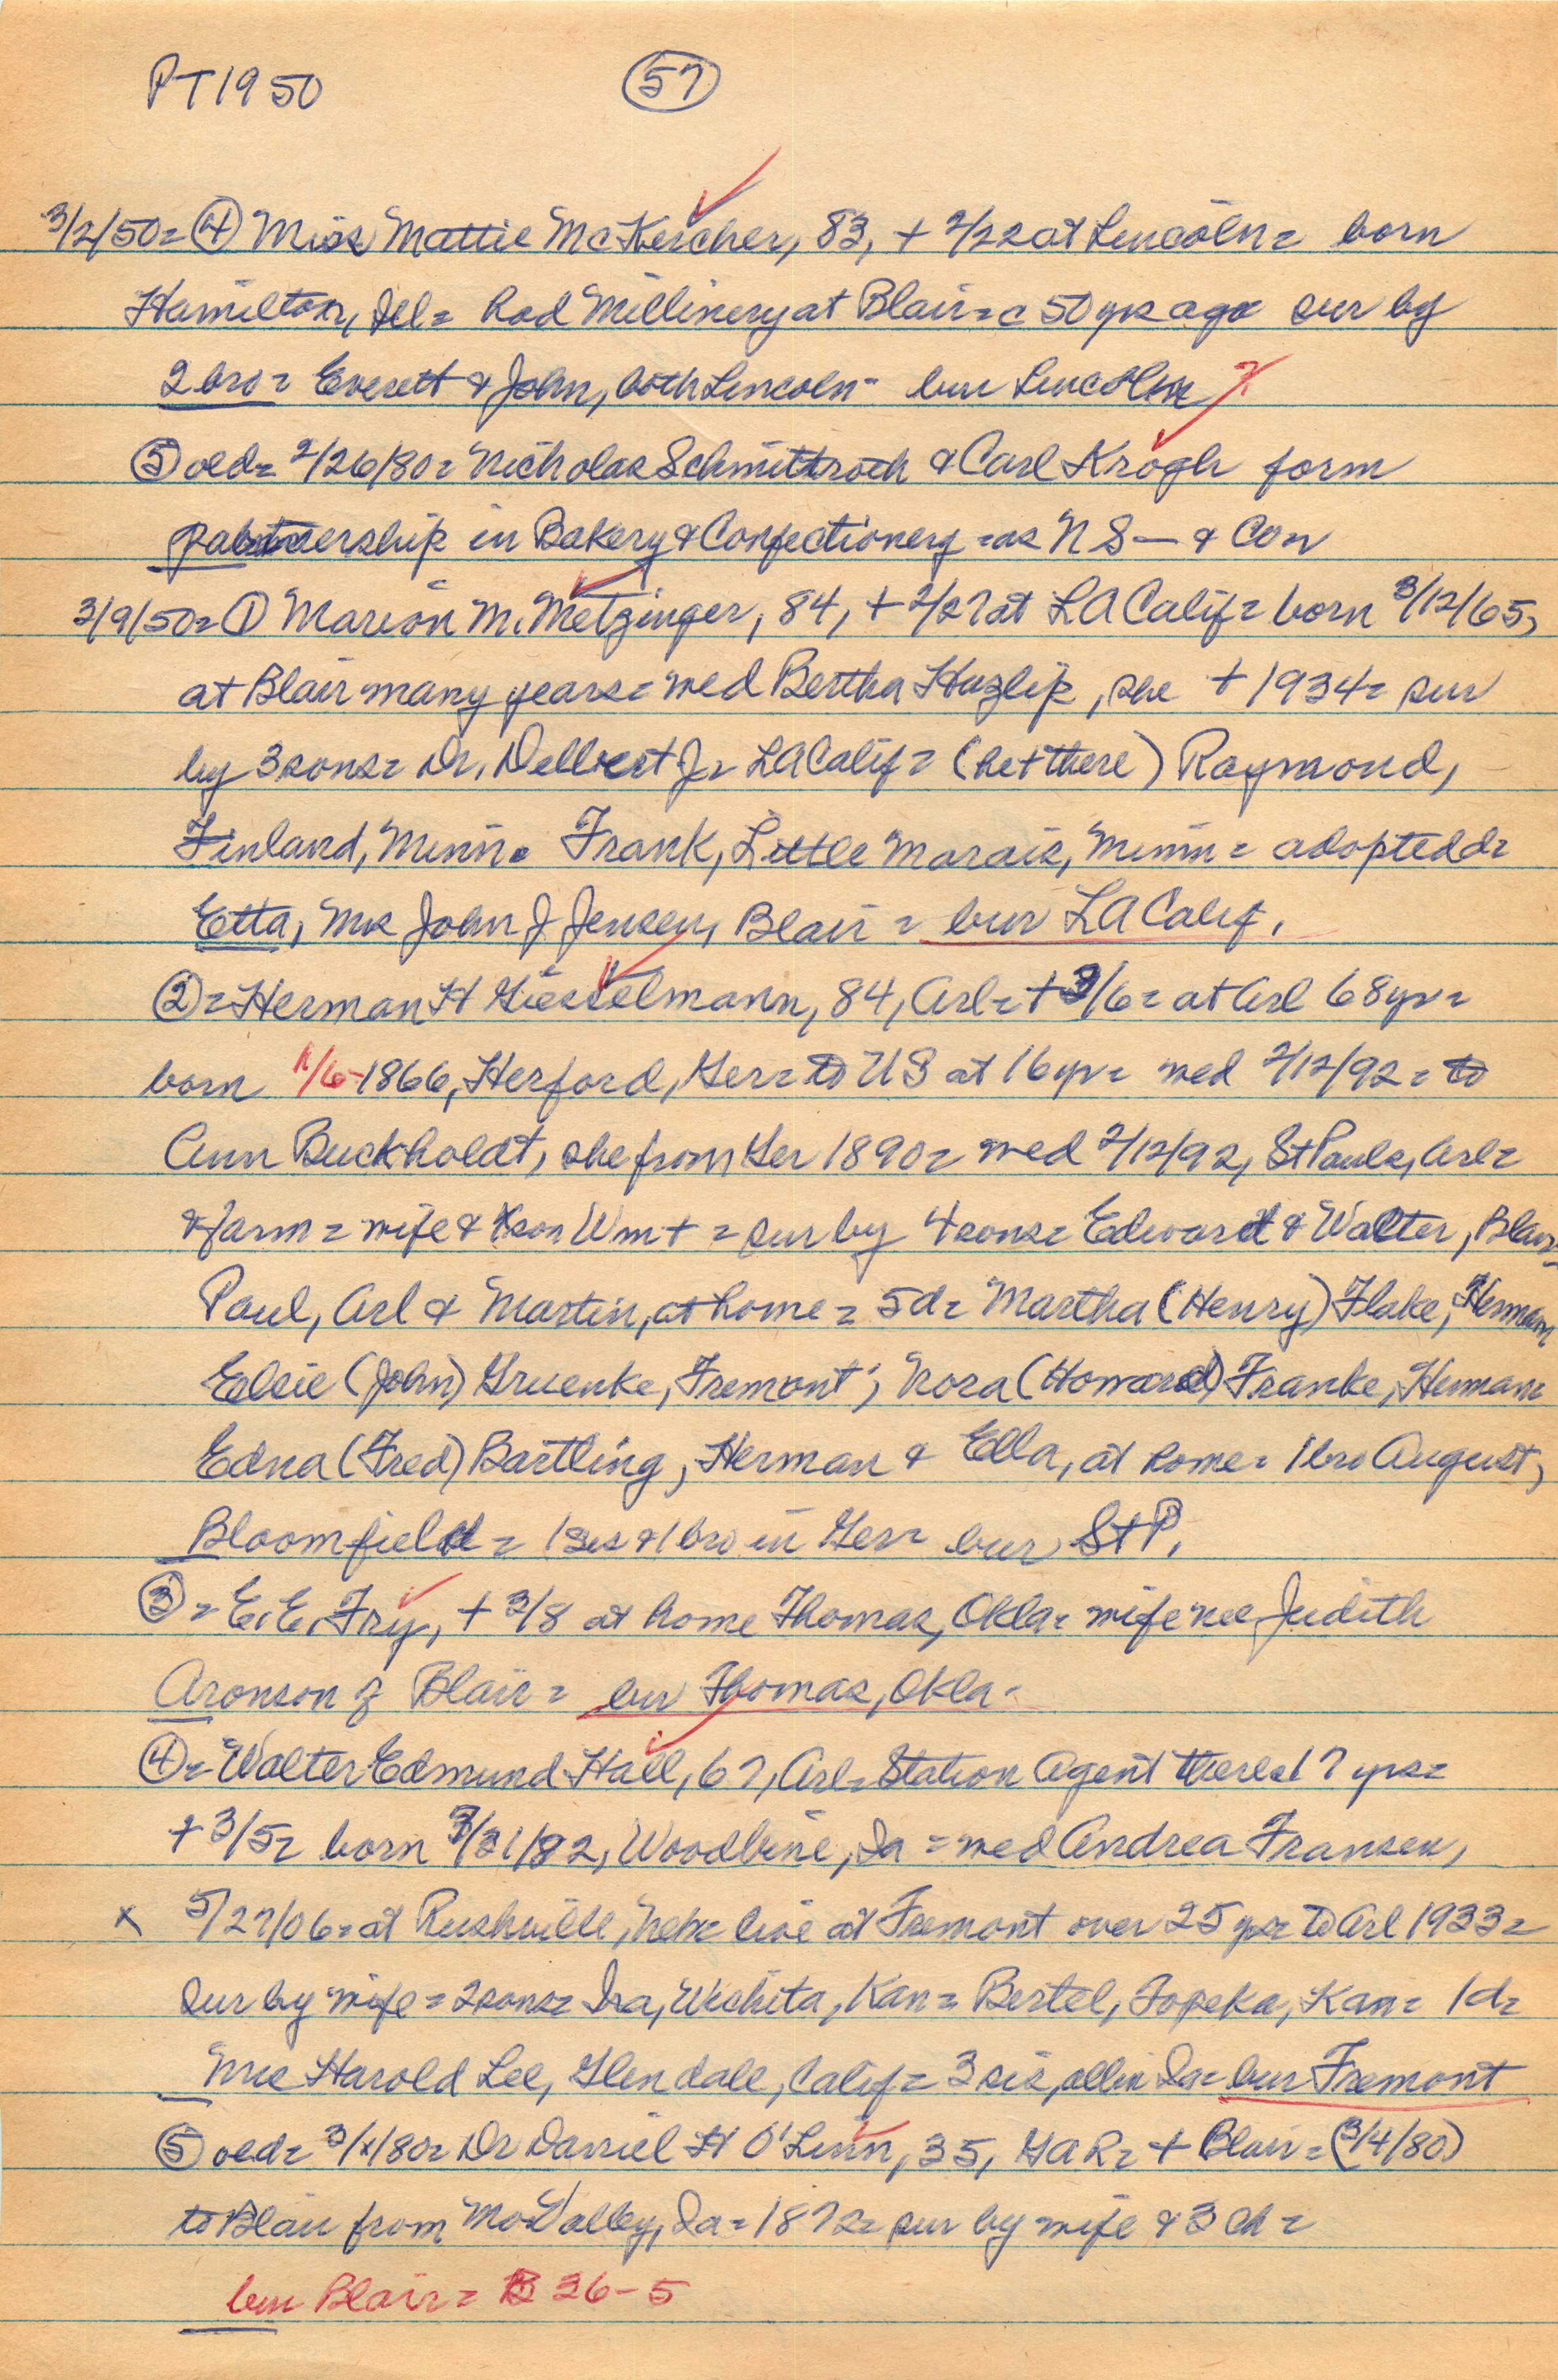 PT 1950 (57)
3/2/50= (4) Miss Mattie McKercher, 83, + 2/22 at Lincoln= born
Hamilton, Ill= had Millinery at Blair= c 50 yrs ago sur by
2 bro= Everett & John, both Lincoln- bur Lincoln ?
(5) old= 2/26/80= Nicholas Schmittroth & Carl Krogh form
partnership in Bakery & Confectionery =as N S— & Co=
3/9/50= (1) Marion M. Metzinger, 84, + 2/27 at LA Calif= born 3/12/65,
at Blair many years= wed Bertha Hazlip, she + 1934= sur
by 3 sons= Dr. Delbert J= LA Calif= (he + there) Raymond,
Finland, Minn. Frank, Little Marais, Minn= adopted d=
Etta, Mrs John J Jensen, Blair = bur LA Calif.
(2)= Herman H Giesselmann, 84, Arl= + 3/6= at Arl 68 yr=
born 11/6-1866, Herford, Ger= to US at 16 yr= wed 2/12/92= to
Ann Buckholdt, she from Ger 1890= wed 2/12/92, St Pauls, Arl=
& farm= wife & son Wm + = sur by 4 sons= Edward & Walter, Blair=
Paul, Arl & Martin, at home= 5 d= Martha (Henry) Flake, Herman
Elsie (John) Gruenke, Fremont; Nora (Howard) Franke, Herman=
Edna (Fred) Bartling, Herman & Ella, at home= 1 bro August,
Bloomfield= 1 sis & 1 bro in Ger= bur St P.
(3)= E. E. Fry, + 3/8 at home Thomas, Okla= wife nee Judith
Aronson of Blair= bur Thomas, Okla-
(4)= Walter Edmund Hall, 67, Arl= Station Agent there 17 yrs=
+ 3/5= born 3/31/82, Woodbine, Ia = wed Andrea Fransen,
x 5/27/06= at Rushville, Neb= live at Fremont over 25 yrs= to Arl 1933=
sur by wife= 2 sons= Ira, Wichita, Kan= Bertel, Topeka, Kan= 1 d=
Mrs Harold Lee, Glendale, Calif= 3 sis, all in Ia= bur Fremont
(5) old= 3/4/80= Dr Daniel H O'Linn, 35, GAR= + Blair= (3/4/80)
to Blair from Mo Valley, Ia= 1872= sur by wife & 3 ch=
bur Blair= B 26-5